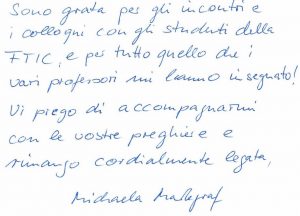 Sono grata per gli incontri e
i collogni con gli studenti della
FTIC, e per tutto quello che i
vari professori mi hanno insegnato!
Vi piego di accompagnarmi
con le vostre preghiere e
rimango cordialmente legata,
Michaela